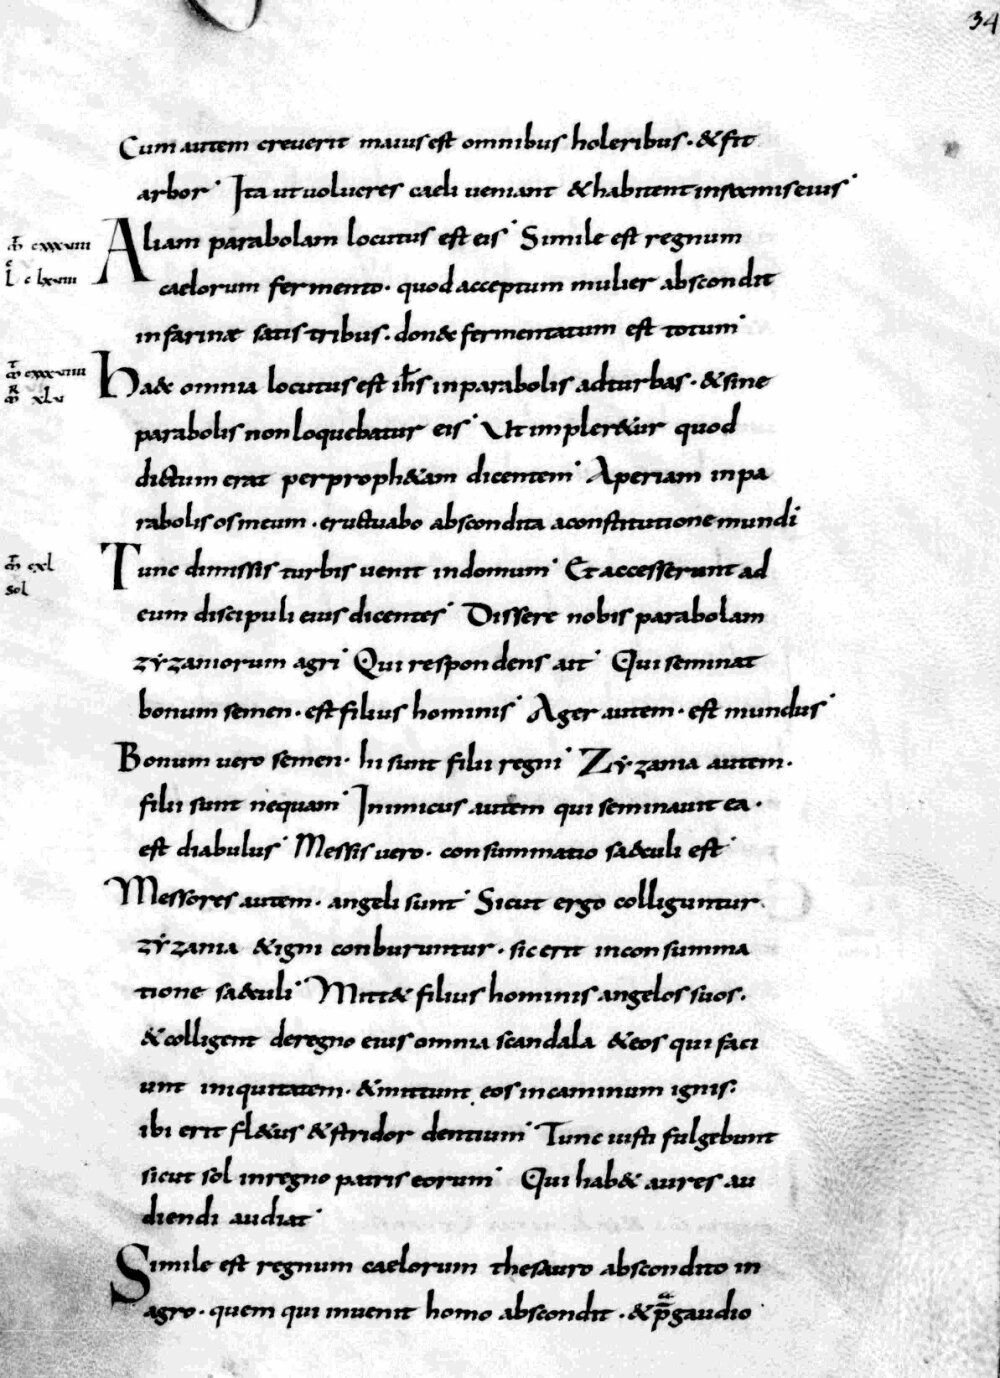 34
Cum autem creuerit maius est omnibus holeribus · & fit
arbor · Ita ut uolucres caeli ueniant & habitent in ramis eius ·
mt cxxxviii
Aliam parabolam locutus est eis · Simile est regnum
L c lxviii
caelorum fermento · quod acceptum mulier abscondit
in farinae satis tribus · donec fermentatum est totum ·
mt cxxxviiii
Haec omnia locutus est ihs in parabolis ad turbas · & sine
mr xlv
parabolis non loquebatur eis · Ut impler&ur quod
dictum erat per proph&am dicentem · Aperiam in pa
rabolis os meum · eructuabo abscondita a constitutione mundi
mt cxl
Tunc dimissis turbis uenit in domum · Et accesserunt ad
sol
eum discipuli eius dicentes · Dissere nobis parabolam
zyzaniorum agri · Qui respondens ait · Qui seminat
bonum semen · est filius hominis · Ager autem · est mundus ·
Bonum uero semen · hi sunt filii regni · Zyzania autem ·
filii sunt nequam · Inimicus autem qui seminauit ea ·
est diabulus · Messis uero · consummatio saeculi est ·
Messores autem · angeli sunt · Sicut ergo colliguntur
zyzania & igni conburuntur · sic erit in consumma
tione saeculi · Mitt& filius hominis angelos suos ·
& colligent de regno eius omnia scandala & eos qui faci
unt iniquitatem · & mittunt eos in caminum ignis :
ibi erit fl&us & stridor dentium · Tunc iusti fulgebunt
sicut sol in regno patris eorum · Qui hab& aures au
diendi audiat ·
Simile est regnum caelorum thesauro abscondito in
agro · quem qui inuenit homo abscondit · & p̄ gaudio